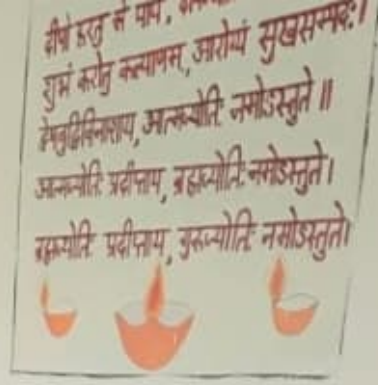 दीपो हरतु मे पापं,
शुभं करोतु कल्याणम्, आरोग्यं सुखसम्पदः।
द्वेषबुद्धिविनाशाय, आत्मज्योतिः नमोऽस्तुते॥
आत्मज्योतिः प्रदीप्ताय, ब्रह्मज्योतिः नमोऽस्तुते।
ब्रह्मज्योतिः प्रदीप्ताय, गुरुज्योतिः नमोऽस्तुते।